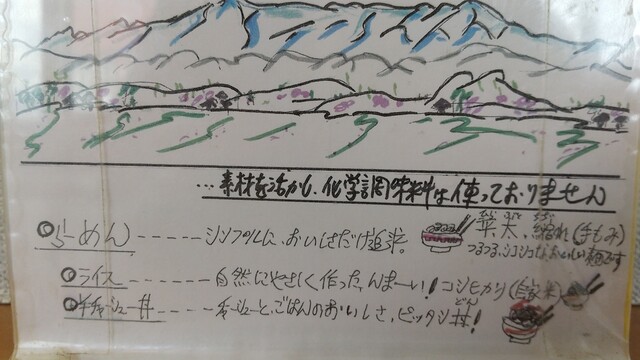 …素材を活かし、化学調味料は使っておりません
◎らーめん ------ シンプルに、おいしさだけ追求。
縮れ(手もみ)
つるつる、シコシコな、おいしい麺です
◎ライス ------ 自然にやさしく作った、んまーい！コシヒカリ(自家米)
◎半チャーシュー丼 ----- チャーシューと、ごはんのおいしさ、ピッタシ丼！
どん